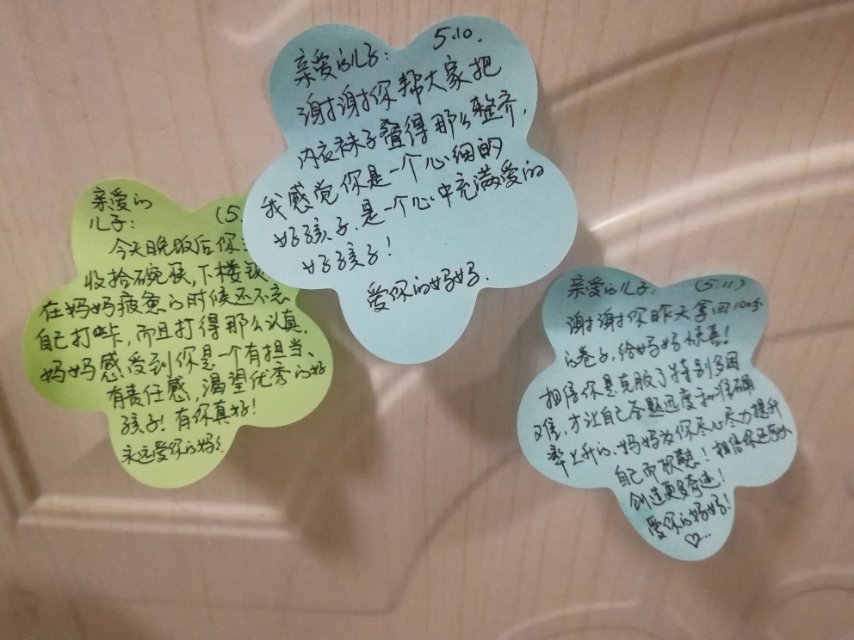 亲爱的儿子: 5.10.
谢谢你帮大家把
内衣袜子叠得那么整齐,
我感觉你是一个心细的
好孩子.是一个心中充满爱的
好孩子!
爱你的妈妈.
亲爱的
儿子: (5.
今天晚饭后你
收拾碗筷,下楼
在妈妈疲惫的时候还不忘
自己打卡,而且打得那么认真.
妈妈感受到你是一个有担当、
有责任感,渴望优秀的好
孩子!有你真好!
永远爱你的妈妈
亲爱的儿子: (5.11)
谢谢你昨天拿回100分
的卷子,给妈妈惊喜!
相信你是克服了特别多困
难,才让自己答题速度和准确
率上升的.妈妈为你尽心尽力提升
自己而欣慰!相信你还可以
创造更多奇迹!
爱你的妈妈!
♡...